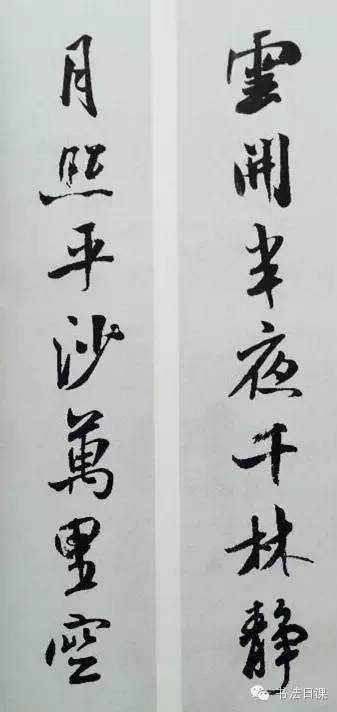 雲開半夜千林静
月照平沙萬里空
书法日课